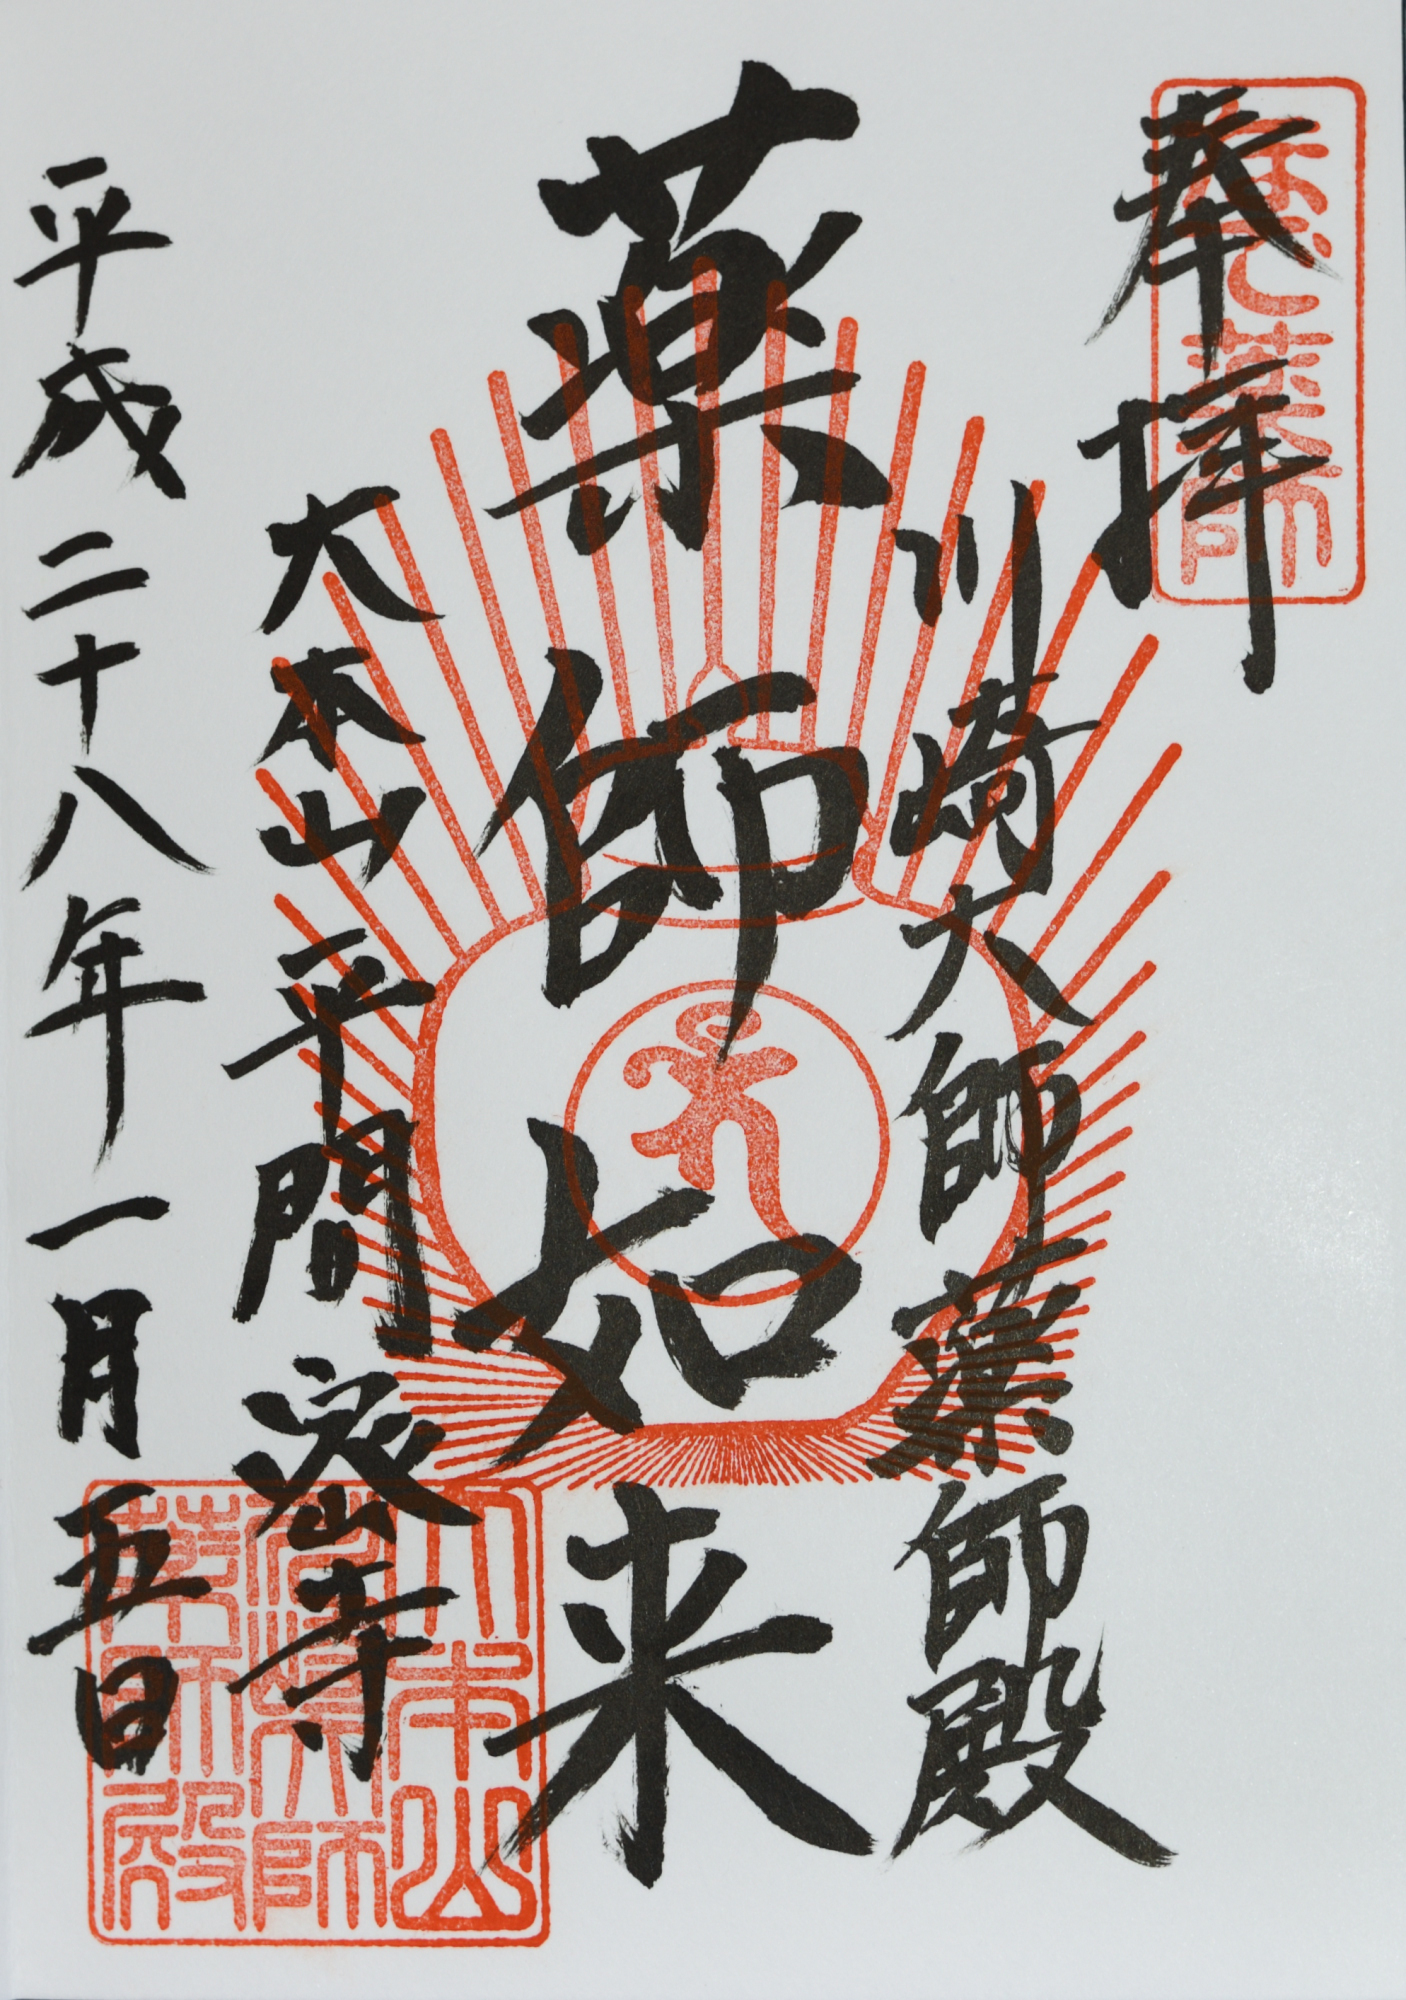 奉拝
川崎大師薬師殿
薬師如来
大本山平間密寺
平成二十八年一月五日
大本山
川崎大師
薬師殿